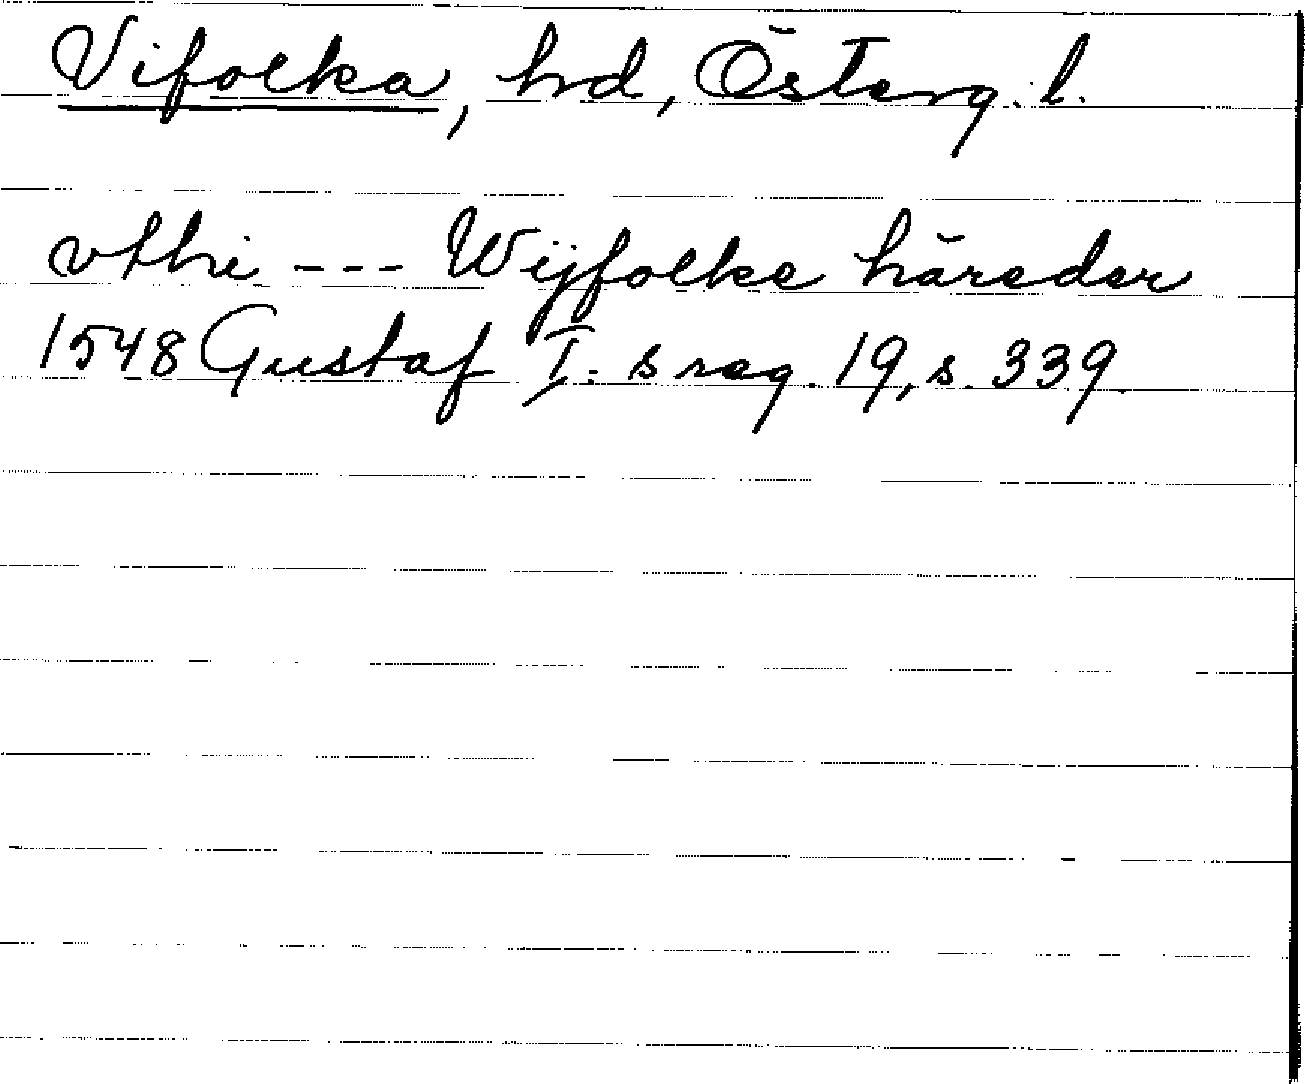 Vifolka, hd, Österg. l.
vthi --- Wijfolke häreder
1548 Gustaf I:s reg. 19, s. 339.